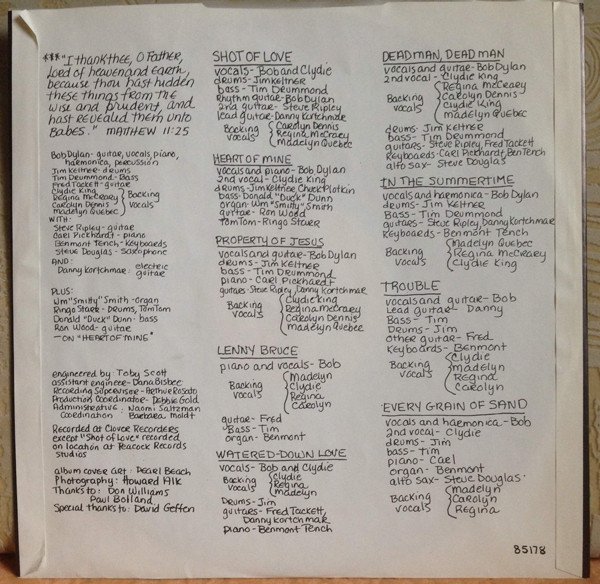 ***"I thank thee, O Father,
Lord of heaven and Earth,
because thou hast hidden
these things from the
wise and prudent, and
hast revealed them unto
Babes." MATTHEW 11:25
Bob Dylan - guitar, vocals, piano,
harmonica, percussion
Jim Keltner - drums
Tim Drummond - Bass
Fred Tackett - guitar
Clydie King
Regina McCreary
Carolyn Dennis
Madelyn Quebec
Backing
vocals
WITH:
Steve Ripley - guitar
Carl Pickhardt - piano
Benmont Tench - Keyboards
Steve Douglas - Saxophone
AND:
Danny Kortchmar - electric
guitar
PLUS:
Wm "Smitty" Smith - Organ
Ringo Starr - Drums, TomTom
Donald "Duck" Dunn - bass
Ron Wood - guitar
—ON "HEART OF MINE"
engineered by: Toby Scott
assistant engineer - Dana Bisbee
Recording Supervisor - Arthur Rosato
Production Coordinator - Debbie Gold
Administrative Coordination - Naomi Saltzman
Barbara Moldt
Recorded at Clover Recorders
except "Shot of Love" recorded
on location at Peacock Records
Studios
album cover art: Pearl Beach
Photography: Howard Alk
Thanks to: Don Williams
Paul Bolland
Special thanks to: David Geffen
SHOT OF LOVE
vocals - Bob and Clydie
drums - Jim Keltner
bass - Tim Drummond
Rhythm guitar - Bob Dylan
2nd guitar - Steve Ripley
lead guitar - Danny Kortchmar
Backing
vocals
Carolyn Dennis
Regina McCreary
madelyn Quebec
HEART OF MINE
vocals and piano - Bob Dylan
2nd vocal - Clydie King
drums - Jim Keltner, Chuck Plotkin
bass - Donald "Duck" Dunn
organ - Wm "Smitty" Smith
guitar - Ron Wood
TomTom - Ringo Starr
PROPERTY OF JESUS
vocals and guitar - Bob Dylan
drums - Jim Keltner
bass - Tim Drummond
piano - Carl Pickhardt
guitars - Steve Ripley, Danny Kortchmar
Backing
vocals
Clydie King
Regina McCreary
Carolyn Dennis
madelyn Quebec
LENNY BRUCE
piano and vocals - Bob
Backing
vocals
madelyn
Clydie
Regina
Carolyn
guitar - Fred
Bass - Tim
organ - Benmont
WATERED-DOWN LOVE
vocals - Bob and Clydie
Backing
vocals
Clydie
Regina
madelyn
Drums - Jim
guitars - Fred Tackett,
Danny Kortchmar
piano - Benmont Tench
DEAD MAN, DEAD MAN
vocals and guitar - Bob Dylan
2nd vocal - Clydie King
Backing
vocals
Regina McCreary
Carolyn Dennis
Clydie King
madelyn Quebec
drums - Jim Keltner
bass - Tim Drummond
guitars - Steve Ripley, Fred Tackett
Keyboards - Carl Pickhardt, Ben Tench
alto sax - Steve Douglas
IN THE SUMMERTIME
vocals and harmonica - Bob Dylan
drums - Jim Keltner
Bass - Tim Drummond
guitars - Steve Ripley, Danny Kortchmar
Keyboards - Benmont Tench
Backing
vocals
Madelyn Quebec
Regina McCreary
Clydie King
TROUBLE
vocals and guitar - Bob
Lead guitar - Danny
Bass - Tim
Drums - Jim
other guitar - Fred
Keyboards - Benmont
Backing
vocals
Clydie
madelyn
Regina
Carolyn
EVERY GRAIN OF SAND
vocals and harmonica - Bob
2nd vocal - Clydie
drums - Jim
bass - Tim
piano - Carl
organ - Benmont
alto sax - Steve Douglas
Backing
vocals
madelyn
Carolyn
Regina
85178